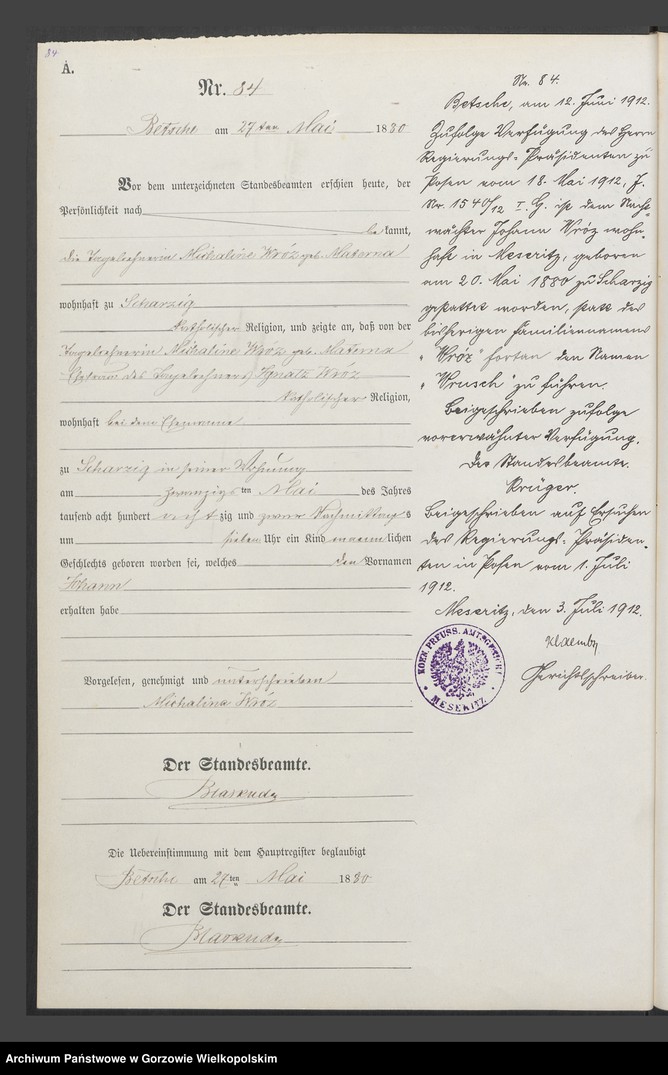 84
A.
Nr. 84
Betsche am 27ten Mai 1880
Vor dem unterzeichneten Standesbeamten erschien heute, der
Persönlichkeit nach
be kannt,
die Tagelöhnerin Michaline Wróz geb. Materna
wohnhaft zu Scharzig
katholischer Religion, und zeigte an, daß von der
Tagelöhnerin Michaline Wróz geb. Materna
Ehefrau des Tagelöhners Ignatz Wróz
katholischer Religion,
wohnhaft bei dem Ehemanne
zu Scharzig in seiner Wohnung
am zwanzigs ten Mai des Jahres
tausend acht hundert acht zig und zwar Nachmittags
um sieben Uhr ein Kind maennlichen
Geschlechts geboren worden sei, welches den Vornamen
Johann
erhalten habe
Vorgelesen, genehmigt und unterschrieben
Michalina Wróz
Der Standesbeamte.
Die Uebereinstimmung mit dem Hauptregister beglaubigt
Betsche am 27ten Mai 1880
Der Standesbeamte.
Nr. 84.
Betsche, am 12. Juni 1912.
Zufolge Verfügung des Herrn
Regierungs-Präsidenten zu
Posen vom 18. Mai 1912, J.
Nr. 1540/12 I. G. ist dem Nacht-
wächter Johann Wróz wohn-
haft in Meseritz, geboren
am 20. Mai 1880 zu Scharzig
gestattet worden, statt des
bisherigen Familiennamens
"Wróz" fortan den Namen
"Wrusch" zu führen.
Beigeschrieben zufolge
vorerwähnter Verfügung.
Der Standesbeamte.
Krüger.
Beigeschrieben auf Ersuchen
des Regierungs-Präsiden-
ten in Posen vom 1. Juli
1912.
Meseritz, den 3. Juli 1912.
Gerichtsschreiber.
KOEN. PREUSS. AMTSGERICHT
MESERITZ
Archiwum Państwowe w Gorzowie Wielkopolskim